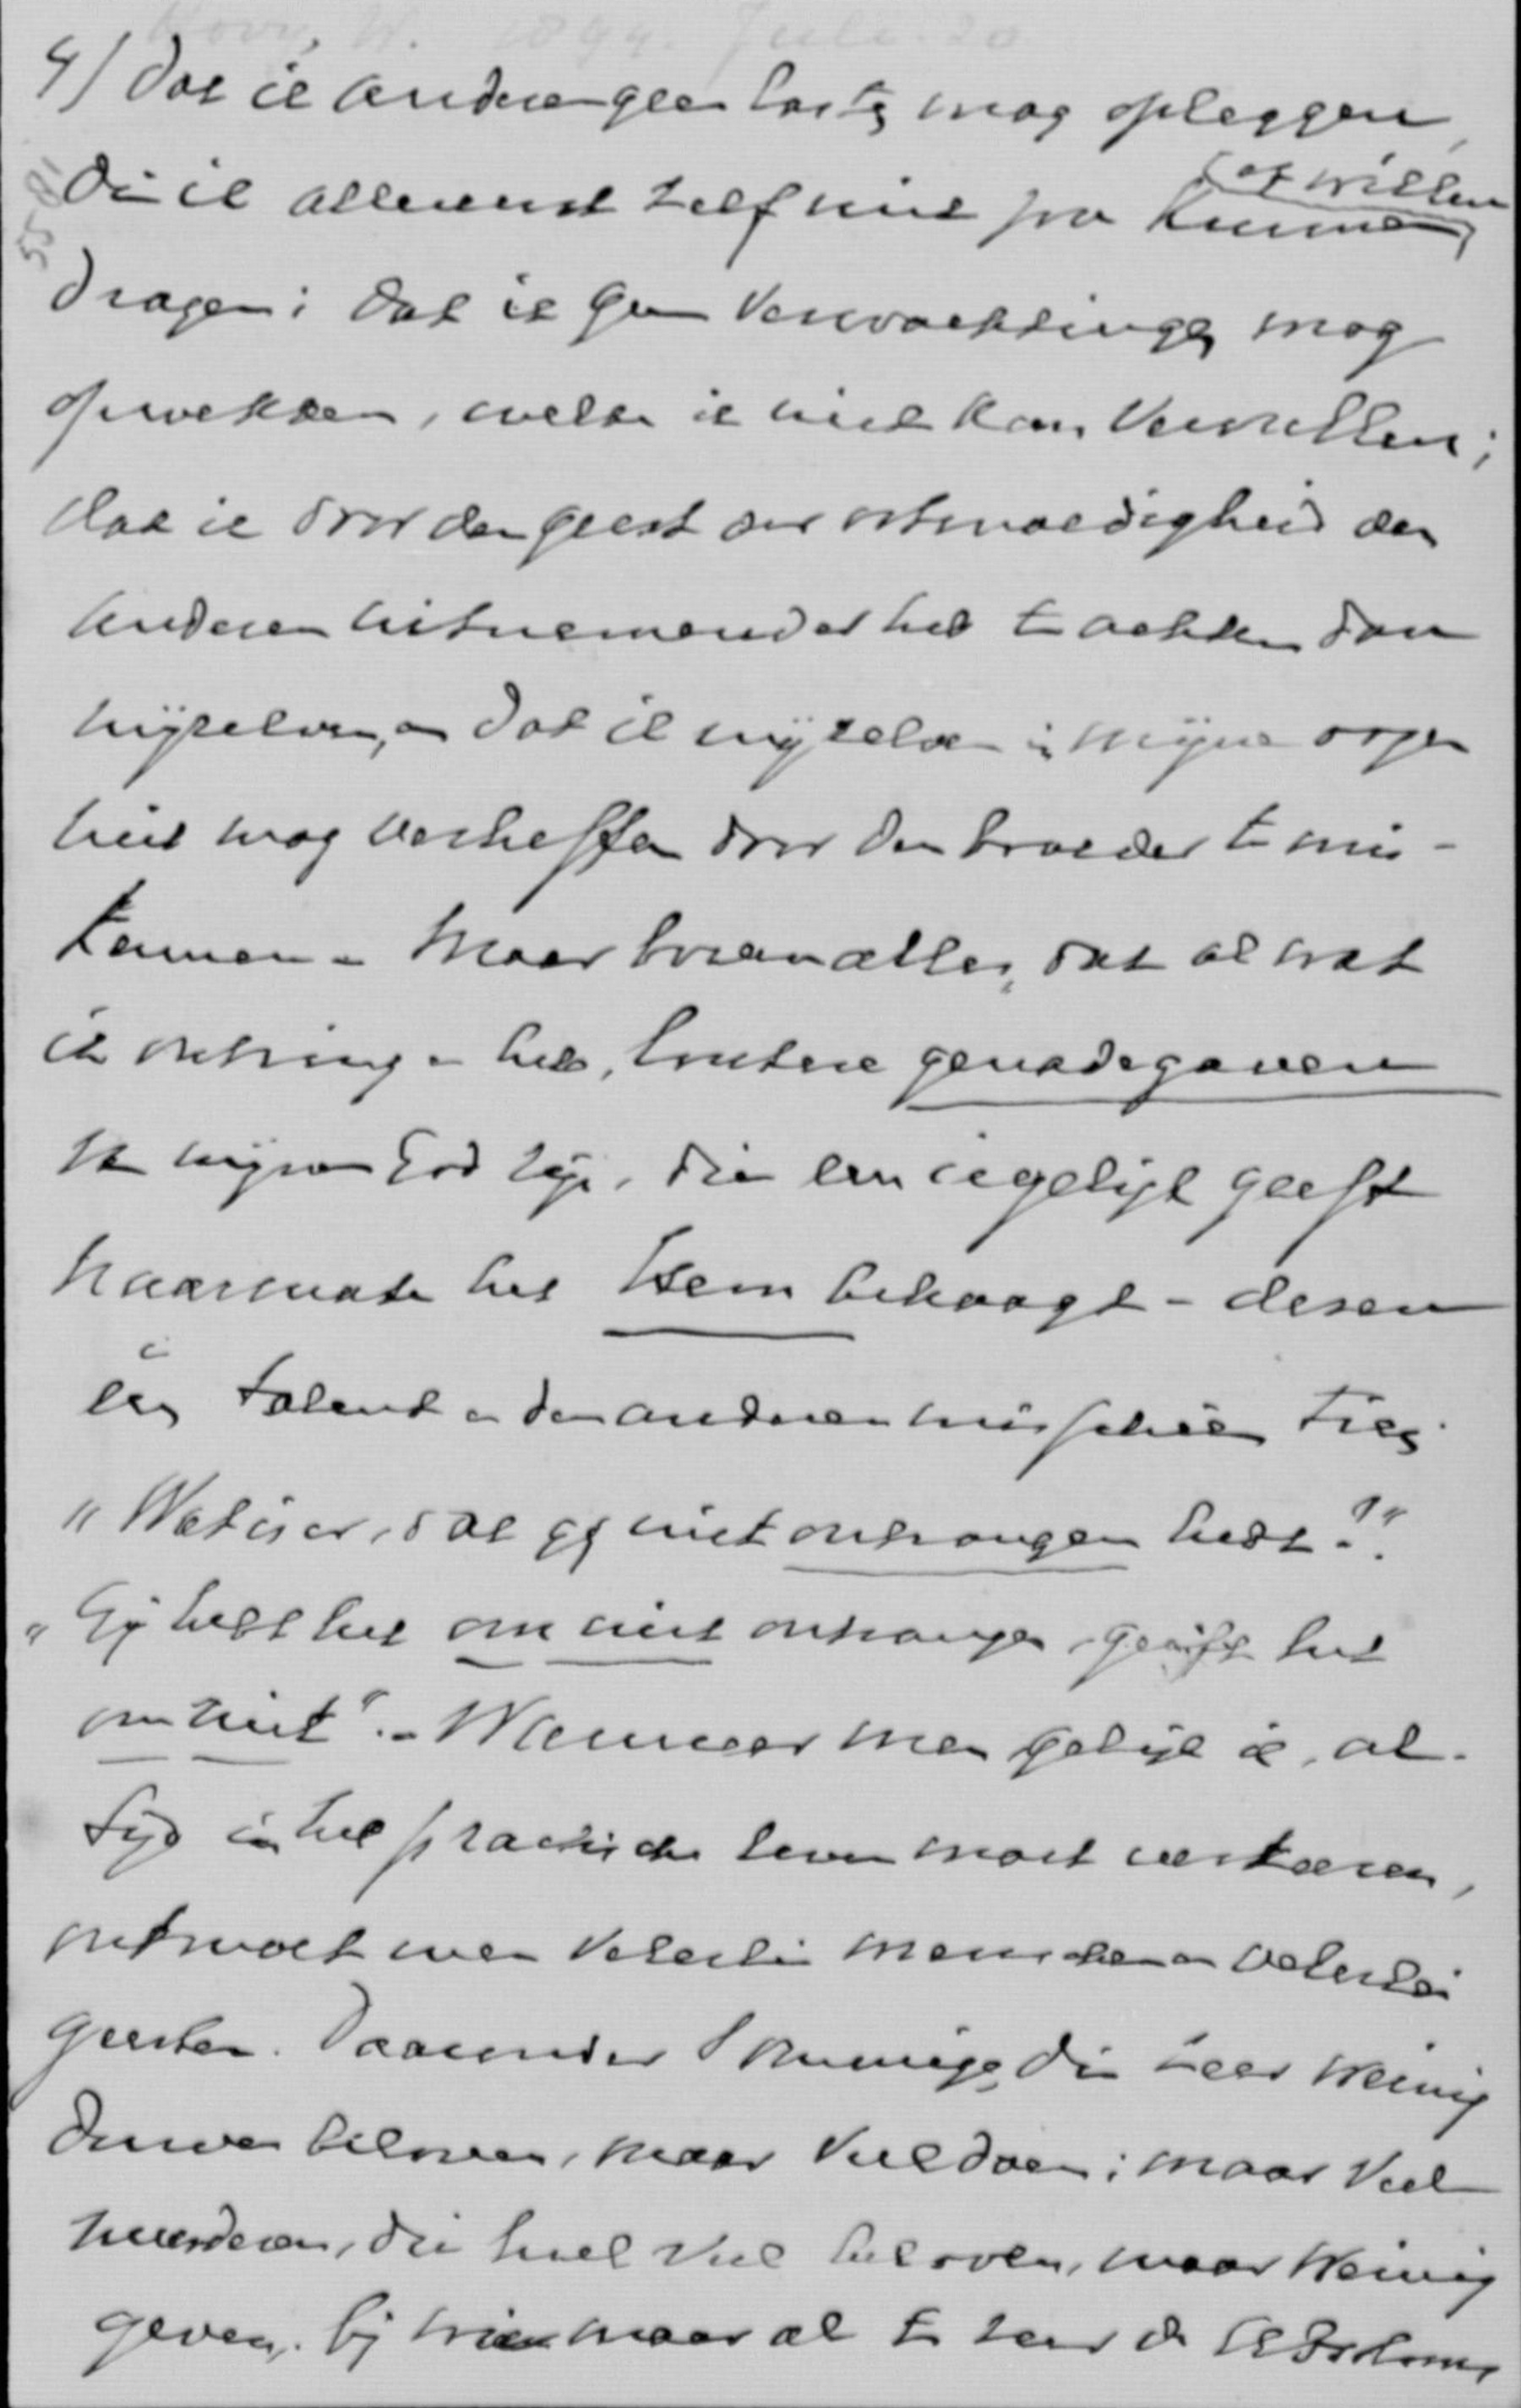 4) dat ik anderen geen lasten mag opleggen,
of willen
die ik allereerst zelf niet zou kunnen
dragen; dat ik geen verwachtingen mag
opwekken, welke ik niet kan vervullen;
dat ik door den geest der ootmoedigheid den
anderen uitnemender heb te achten dan
mijzelven, en dat ik mijzelven in mijne oogen
niet mag verheffen door den broeder te mis-
kennen. Maar bovenal, dat al wat
ik ontving en heb, loutere genadegaven
van mijnen God zijn, die een iegelijk geeft
naarmate het Hem behaagt - dezen
één talent en den anderen misschien tien.
"Wat is er, dat gij niet ontvangen hebt?"
"Gij hebt het om niet ontvangen, geeft het
om niet". - Wanneer men gelijk ik, al-
tijd in het practische leven moet verkeeren,
ontmoet men velerlei menschen en velerlei
geesten. Daaronder sommigen, die zeer weinig
durven beloven, maar veel doen; maar veel
meerderen, die heel veel beloven, maar weinig
geven, bij wien maar al te zeer de